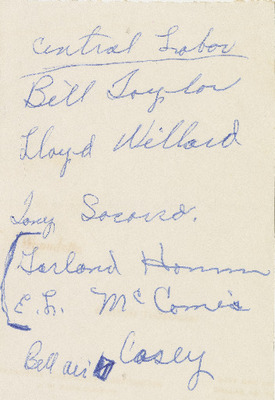 Central Labor
Bill Taylor
Lloyd Willard
Tony
Garland
E. L. McComis
Bellair Casey